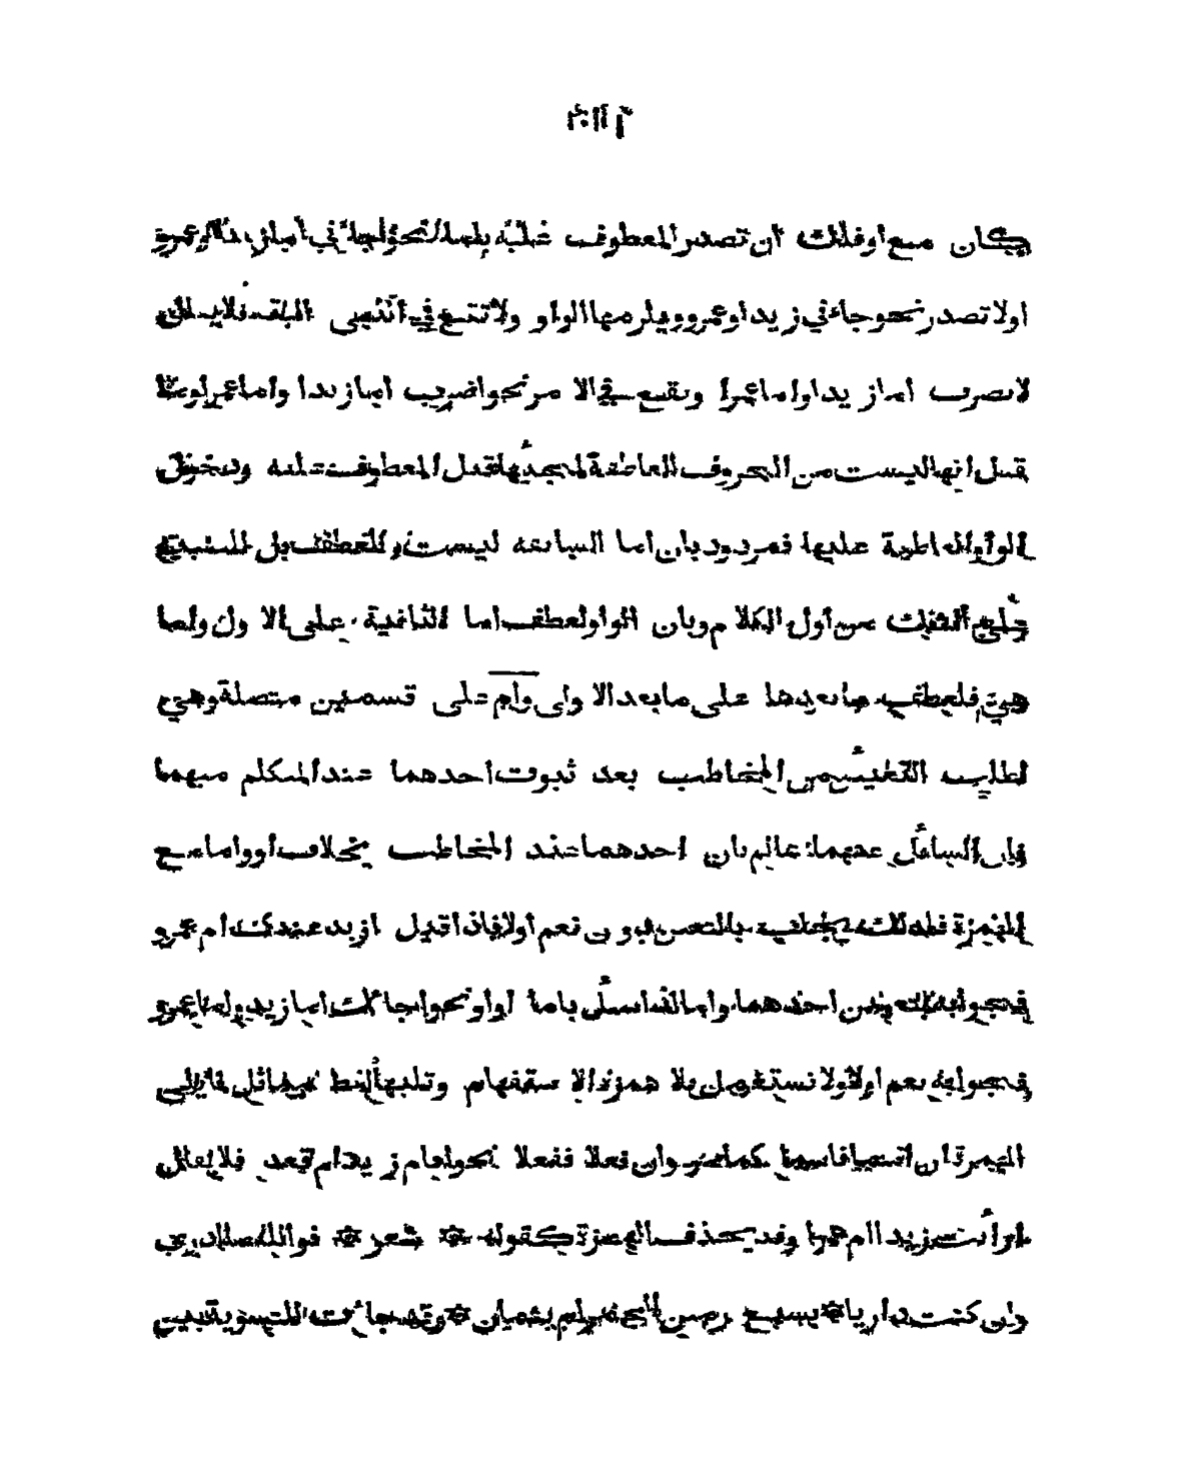 كان مع او فلك ان تصدر المعطوف عليه باما نحو جاءني اما زيد او عمرو
اولا تصدر نحو جاءني زيد او عمرو ويلزمها الواو ولا تقع في النهي فلا يقال
لا تضرب اما زيدا واما عمرا وتقع في الامر نحو اضرب اما زيدا واما عمرا
قيل انها ليست من الحروف العاطفة لمجيئها قبل المعطوف عليه ودخول
الواو العاطفة عليها فمردود بان اما السابقة ليست للعطف بل للتنبيه
على الشك من اول الكلام وبان الواو لعطف اما الثانية على الاولى واما
هي فلعطف ما بعدها على ما بعد الاولى وام على قسمين متصلة وهي
لطلب التعيين من المخاطب بعد ثبوت احدهما عند المتكلم مبهما
فان السائل عنهما عالم بان احدهما عند المخاطب بخلاف او واما مع
الهمزة فلذلك يجاب بالتعيين دون نعم اولا فاذا قيل ازيد عندك ام عمرو
فجوابه بتعيين احدهما واما اذا سئل باما او او نحو اجاءك اما زيد واما عمرو
فجوابه نعم اولا ولا تستعمل بلا همزة الاستفهام وتليها لفظ مماثل لما يلي
الهمزة ان اسما فاسما كما مر وان فعلا ففعلا نحو اقام زيد ام قعد فلا يقال
ارأيت زيدا ام عمرا وقد يحذف الهمزة كقوله ۞ شعر ۞ فوالله ما ادري
وان كنت داريا ۞ بسبع رمين الجمر ام بثمان ۞ وقد جاءت للتسوية بين